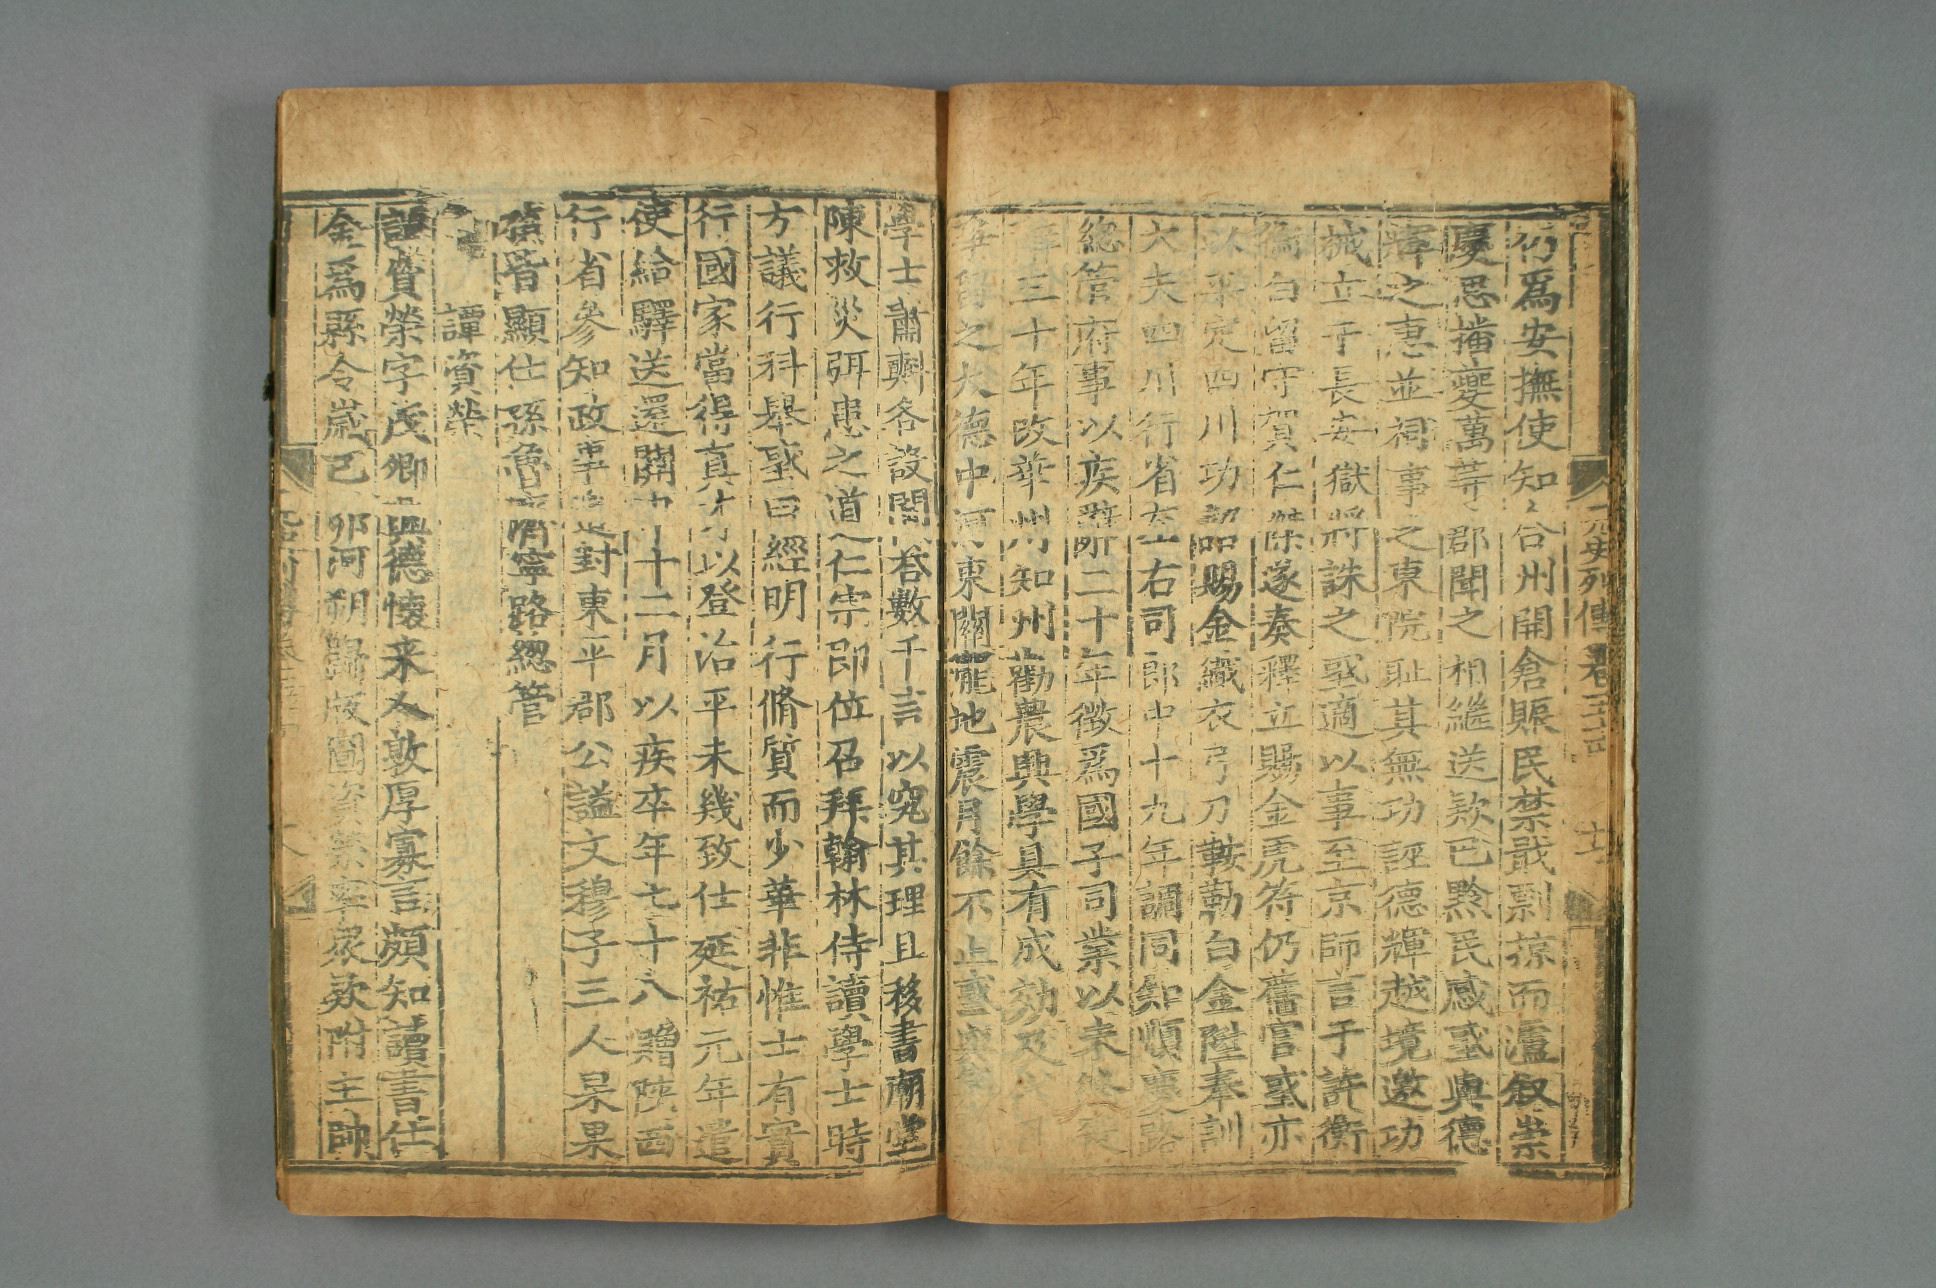 行爲安撫使知合州開倉賑民禁戢剽掠而瀘叙崇
慶思播夔萬等郡聞之相繼送欵巴黔民感或與德
輝之惠並祠事之東院耻其無功誣德輝越境邀功
械立于長安獄將誅之或適以事至京師言于許衡
白留守賀仁傑遂奏釋立賜金虎符仍舊官或亦
以平定四川功詔賜金織衣弓刀鞍勒白金陞奉訓
大夫四川行省左右司郎中十九年調同知順慶路
總管府事以疾辭二十年徵爲國子司業以未
三十年改華州知州勸農興學具有成効及
留之大德中河東關隴地震月餘不止或與
學士蕭㪺各設問荅數千言以究其理且移書廟堂
陳救災弭患之道仁宗即位召拜翰林侍讀學士時
方議行科舉或曰經明行脩質而少華非惟士有實
行國家當得真才以登治平未幾致仕延祐元年遣
使給驛送還關中十二月以疾卒年七十八贈陝西
行省參知政事追封東平郡公謚文穆子三人杲果
皆顯仕孫魯濟寧路總管
譚資榮
譚資榮字茂卿興德懷来人敦厚寡言頗知讀書仕
金爲縣令歲己卯河朔歸版圖資榮率眾欵附主帥
元史列傳卷五十四
十七